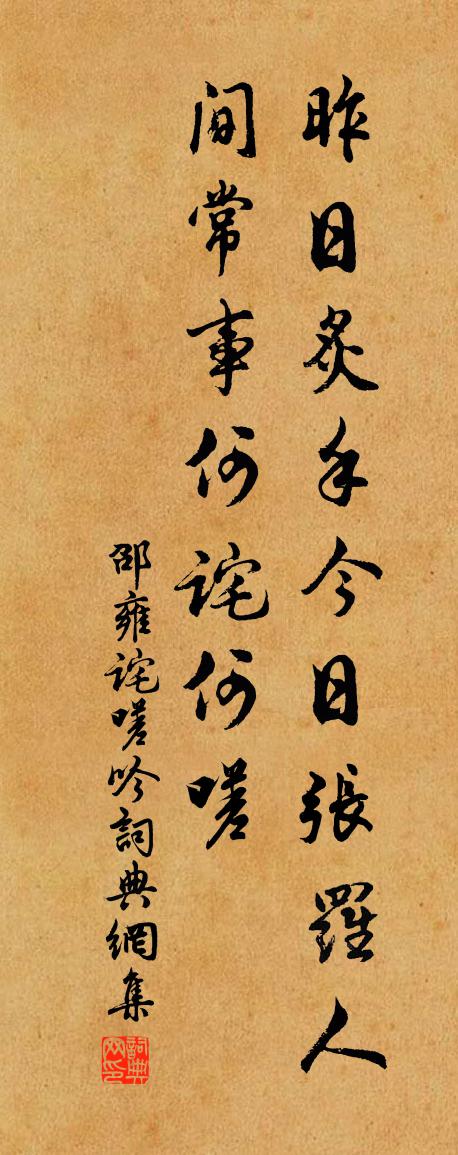 昨日炙手今日張羅人
間常事何詫何嗟
邵雍詫嗟吟詞典網集
詞典網印